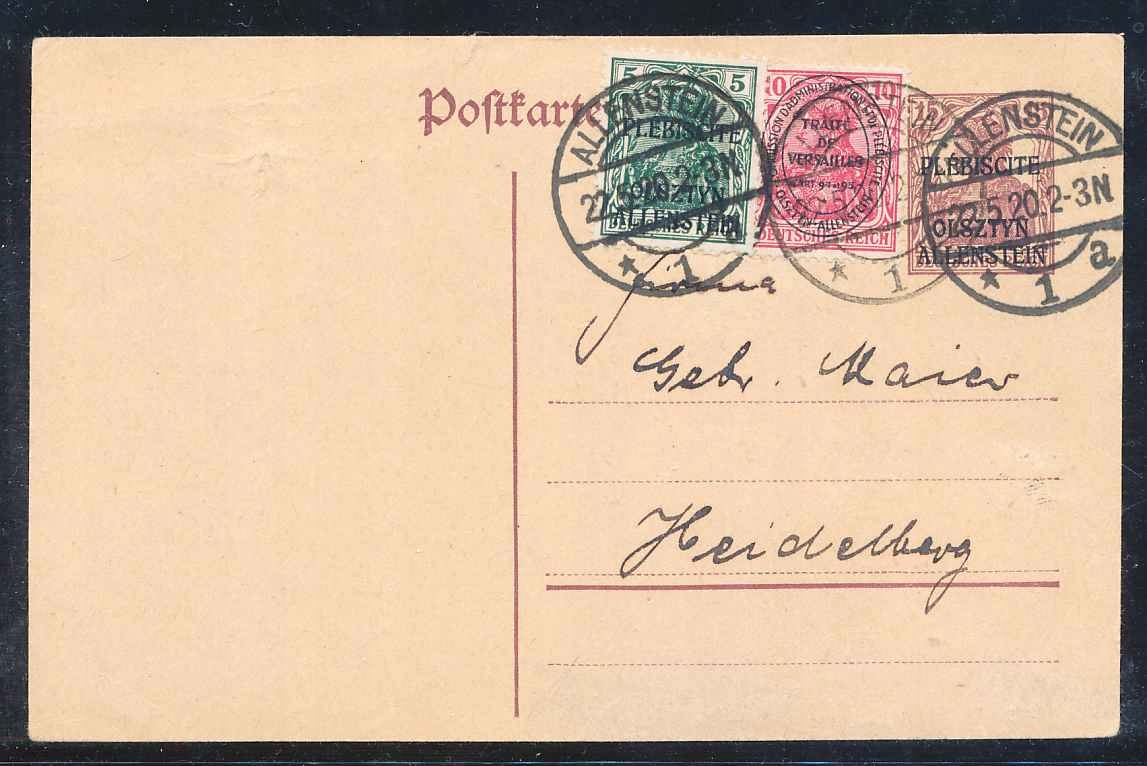 Postkarte
5 5
PLÉBISCITE
OLSZTYN
ALLENSTEIN
10 10
TRAITÉ
DE
VERSAILLES
ART. 94 et 95
OLSZTYN-ALLENSTEIN
DEUTSCHES REICH
15
PLÉBISCITE
OLSZTYN
ALLENSTEIN
ALLENSTEIN
22.5.20.2-3N
* 1 a
* 1
ALLENSTEIN
22.5.20.2-3N
* 1 a
Firma
Gebr. Maier
Heidelberg